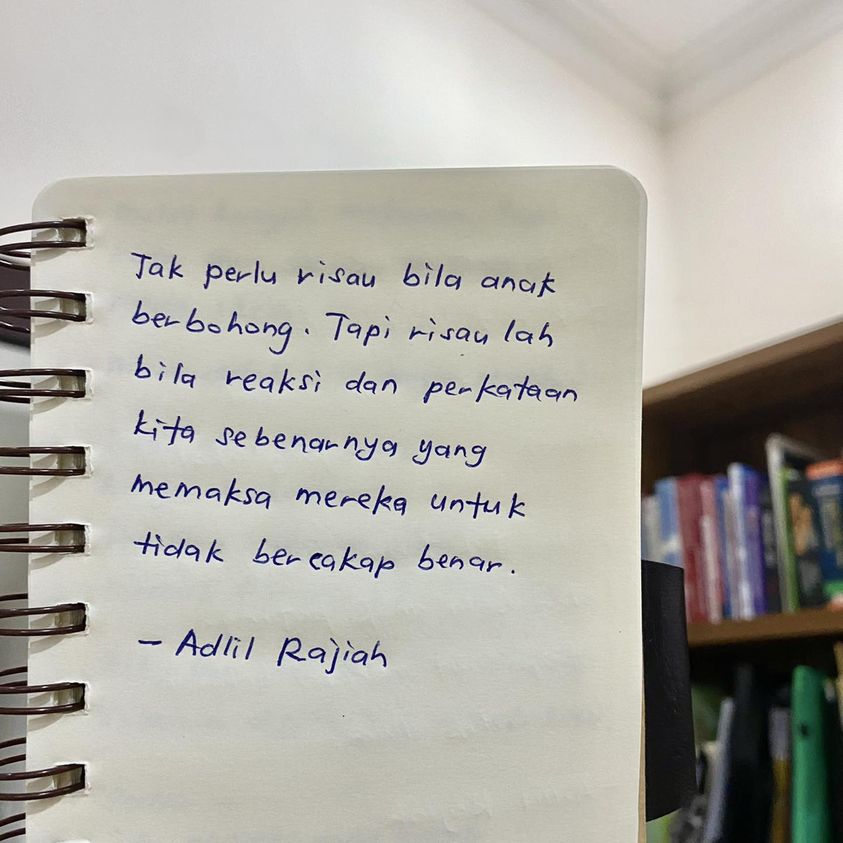 Tak perlu risau bila anak
berbohong. Tapi risau lah
bila reaksi dan perkataan
kita sebenarnya yang
memaksa mereka untuk
tidak bercakap benar.
– Adlil Rajiah